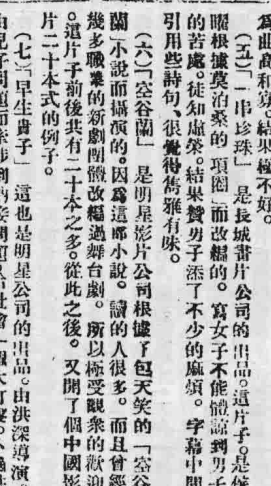 為曲高和寡。結果極不好。
(五)「一串珍珠」 是長城畫片公司的出品。這片子。是侯
曜根據莫泊桑的「項圈」而改編的。寫女子不能體諒到男子
的苦處。徒知虛榮。結果贊男子添了不少的麻煩。字幕中間
引用些詩句、很覺得雋雅有味。
(六)「空谷蘭」 是明星影片公司根據了包天笑的「空谷
蘭」小說而攝演的。因爲這部小說。讀的人很多。而且曾經
幾多職業的新劇團體改編過舞台劇。所以極受觀衆的歡迎
。這片子前後共有二十本之多。從此之後。又開了個中國影
片二十本式的例子。
(七)「早生貴子」 這也是明星公司的出品。由洪深導演